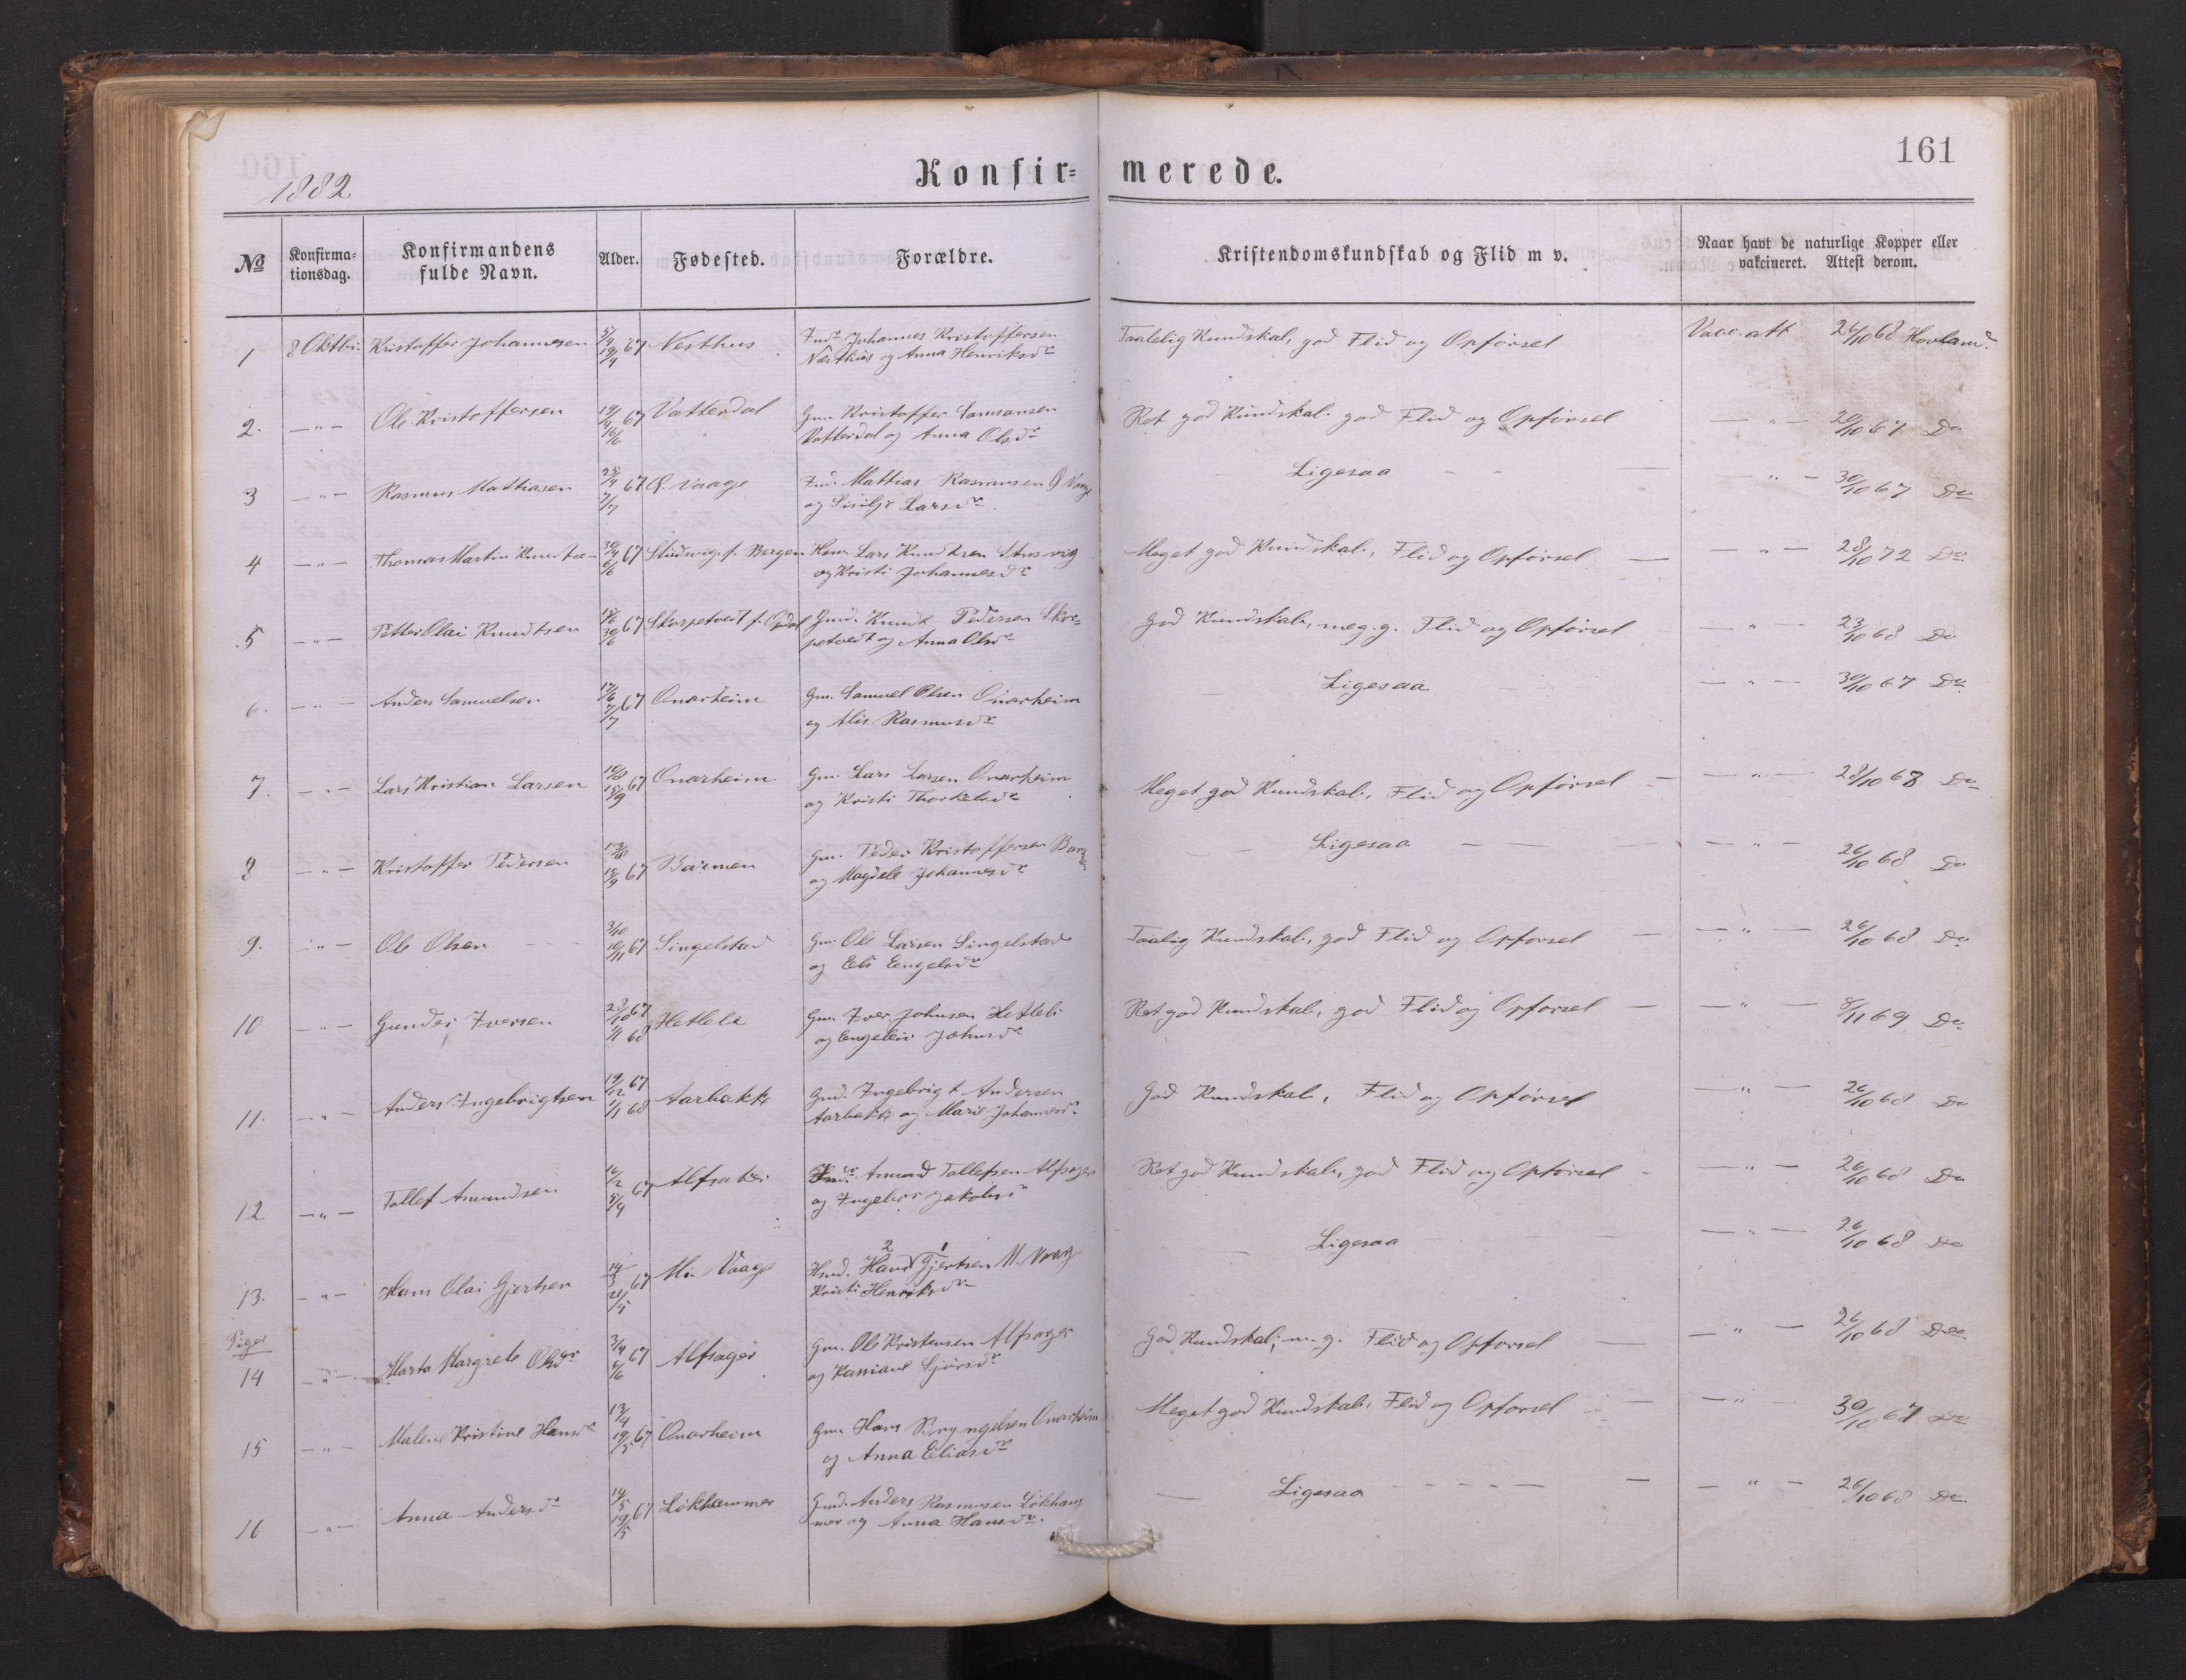 161
1882
Konfir= merede.
№ Konfirma-tionsdag. Konfirmandens fulde Navn. Alder. Fødested. Forældre. Kristendomskundskab og Flid m v. Naar havt de naturlige Kopper eller vakcineret. Attest derom.
1 8 Oktbr. Kristoffer Johannesen 5/4 67 Nesthus Ind. Johannes Kristoffersen Taalelig Kundskab, god Flid og Opførsel Vacc. att 26/10 68 Hovland.
19/4 Nesthus og Anna Henriksdr
2. — " — Ole Kristoffersen 19/4 67 Vatterdal Gm. Kristoffer Samsonsen Ret god Kundskab. god Flid og Opførsel — " — 26/10 67 Do
16/6 Vatterdal og Anna Olsdr
3 — " — Rasmus Mathiasen 25/4 67 Ø. Vaage Ind. Mattias Rasmusen Ø Vaage Ligesaa — " — 30/10 67 Do
7/7 og Sisilje Larsdr
4 — " — Thomas Martin Knudtsen 30/4 67 Studsvig. f. Bergen Hm. Lars Knudtsen Meget god Kundskab., Flid og Opførsel — " — 28/10 72 Do
6/6 og Kristi Johannesdr
5 — " — Petter Olai Knudtsen 15/6 67 Skorpetvedt f. Opdal Gmd. Knudt Pedersen Skor- God Kundskab, meg. g. Flid og Opførsel — " — 23/10 68 Do
30/6 petvedt og Anna Olsdr
6. — " — Anders Samuelsen 17/6 67 Onarheim Gm. Samuel Olsen Onarheim Ligesaa — " — 30/10 67 Do
7/7 og Alis Rasmusdr
7. — " — Lars Kristian Larsen 10/8 67 Onarheim Gm. Lars Larsen Onarheim Meget god Kundskab., Flid og Opførsel — " — 28/10 68 Do
15/9 og Kristi Thorkelsdr
8 — " — Kristoffer Pedersen 13/8 67 Barmen Gm. Peder Kristoffersen Ligesaa — " — 26/10 68 Do
15/9 og Magdele Johannesdr
9. — " — Ole Olsen 3/10 67 Singelstad Gm. Ole Larsen Singelstad Taalig Kundskab, god Flid og Opførsel — " — 26/10 68 Do
10/11 og Eli Engelsdr
10 — " — Gunder Iversen 23/10 67 Hetlele Gm. Iver Johnsen Hetlele Ret god Kundskab, god Flid og Opførsel — " — 8/11 69 Do
1/1 68 og Engelev Johnsdr
11. — " — Anders Ingebrigtsen 19/12 67 Aarbakke Gmd. Ingebrigt Andersen God Kundskab, Flid og Opførsel — " — 26/10 68 Do
1/1 68 Aarbakke og Marie Johannesdr
12 — " — Tollef Amundsen 16/2 67 Alfsaker Amund Tollefsen Alfsager Ret god Kundskab, god Flid og Opførsel — " — 26/10 68 Do
4/4 og Ingebor Jakobsdr
13. — " — Hans Olai Gjertsen 14/3 67 M. Vaage Hmd. Hans 2 Gjertsen 1 M. Vaag Ligesaa — " — 26/10 68 Do
21/4 Kristi Henriksdr
Piger
14 — " — Marta Margrete Olsdr 3/4 67 Alfsager Gm. Ole Kristensen Alfsager God Kundskab, m. g. Flid og Opførsel — " — 26/10 68 Do
6/6 og Kassiane Sjursdr
15 — " — Malene Kristine Hansdr 13/4 67 Onarheim Gm Hans Bryngelsen Onarheim Meget god Kundskab, Flid og Opførsel — " — 30/10 67 Do
19/5 og Anna Eliasdr
16 — " — Anna Andersdr 14/5 67 Løkhammer Gmd. Anders Rasmusen Løkham- Ligesaa — " — 26/10 68 Do.
19/5 mer og Anna Hansdr.